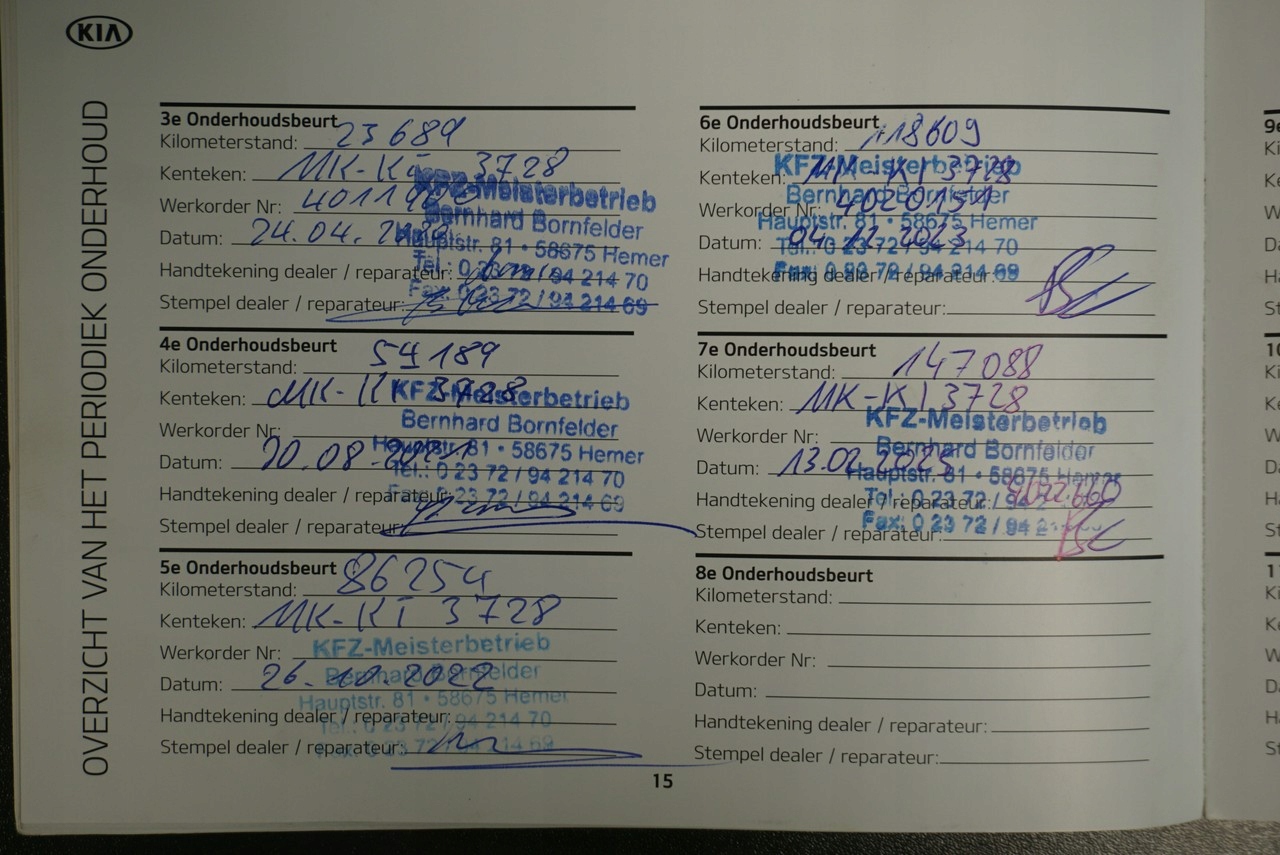 KIA
OVERZICHT VAN HET PERIODIEK ONDERHOUD
3e Onderhoudsbeurt
Kilometerstand: 23689
Kenteken: MK-KI 3728
Werkorder Nr:
Datum: 24.04.
Handtekening dealer / reparateur:
Stempel dealer / reparateur:
KFZ-Meisterbetrieb
Bernhard Bornfelder
Hauptstr. 81 • 58675 Hemer
Tel.: 0 23 72 / 94 214 70
Fax: 0 23 72 / 94 214 69
4e Onderhoudsbeurt
Kilometerstand: 54189
Kenteken: MK-KI 3728
Werkorder Nr:
Datum:
Handtekening dealer / reparateur:
Stempel dealer / reparateur:
KFZ-Meisterbetrieb
Bernhard Bornfelder
Hauptstr. 81 • 58675 Hemer
Tel.: 0 23 72 / 94 214 70
Fax: 0 23 72 / 94 214 69
5e Onderhoudsbeurt
Kilometerstand: 86254
Kenteken: MK-KI 3728
Werkorder Nr:
Datum: 26.10.2022
Handtekening dealer / reparateur:
Stempel dealer / reparateur:
KFZ-Meisterbetrieb
Bernhard Bornfelder
Hauptstr. 81 • 58675 Hemer
Tel.: 0 23 72 / 94 214 70
Fax: 0 23 72 / 94 214 69
6e Onderhoudsbeurt
Kilometerstand: 118609
Kenteken: MK-KI 3728
Werkorder Nr: 4020151
Datum: 04.12.2023
Handtekening dealer / reparateur:
Stempel dealer / reparateur:
KFZ-Meisterbetrieb
Bernhard Bornfelder
Hauptstr. 81 • 58675 Hemer
Tel.: 0 23 72 / 94 214 70
Fax: 0 23 72 / 94 214 69
7e Onderhoudsbeurt
Kilometerstand: 147088
Kenteken: MK-KI 3728
Werkorder Nr:
Datum: 13.02.2025
Handtekening dealer / reparateur:
Stempel dealer / reparateur:
KFZ-Meisterbetrieb
Bernhard Bornfelder
Hauptstr. 81 • 58675 Hemer
Tel.: 0 23 72 / 94
Fax: 0 23 72 / 94
8e Onderhoudsbeurt
Kilometerstand:
Kenteken:
Werkorder Nr:
Datum:
Handtekening dealer / reparateur:
Stempel dealer / reparateur:
15